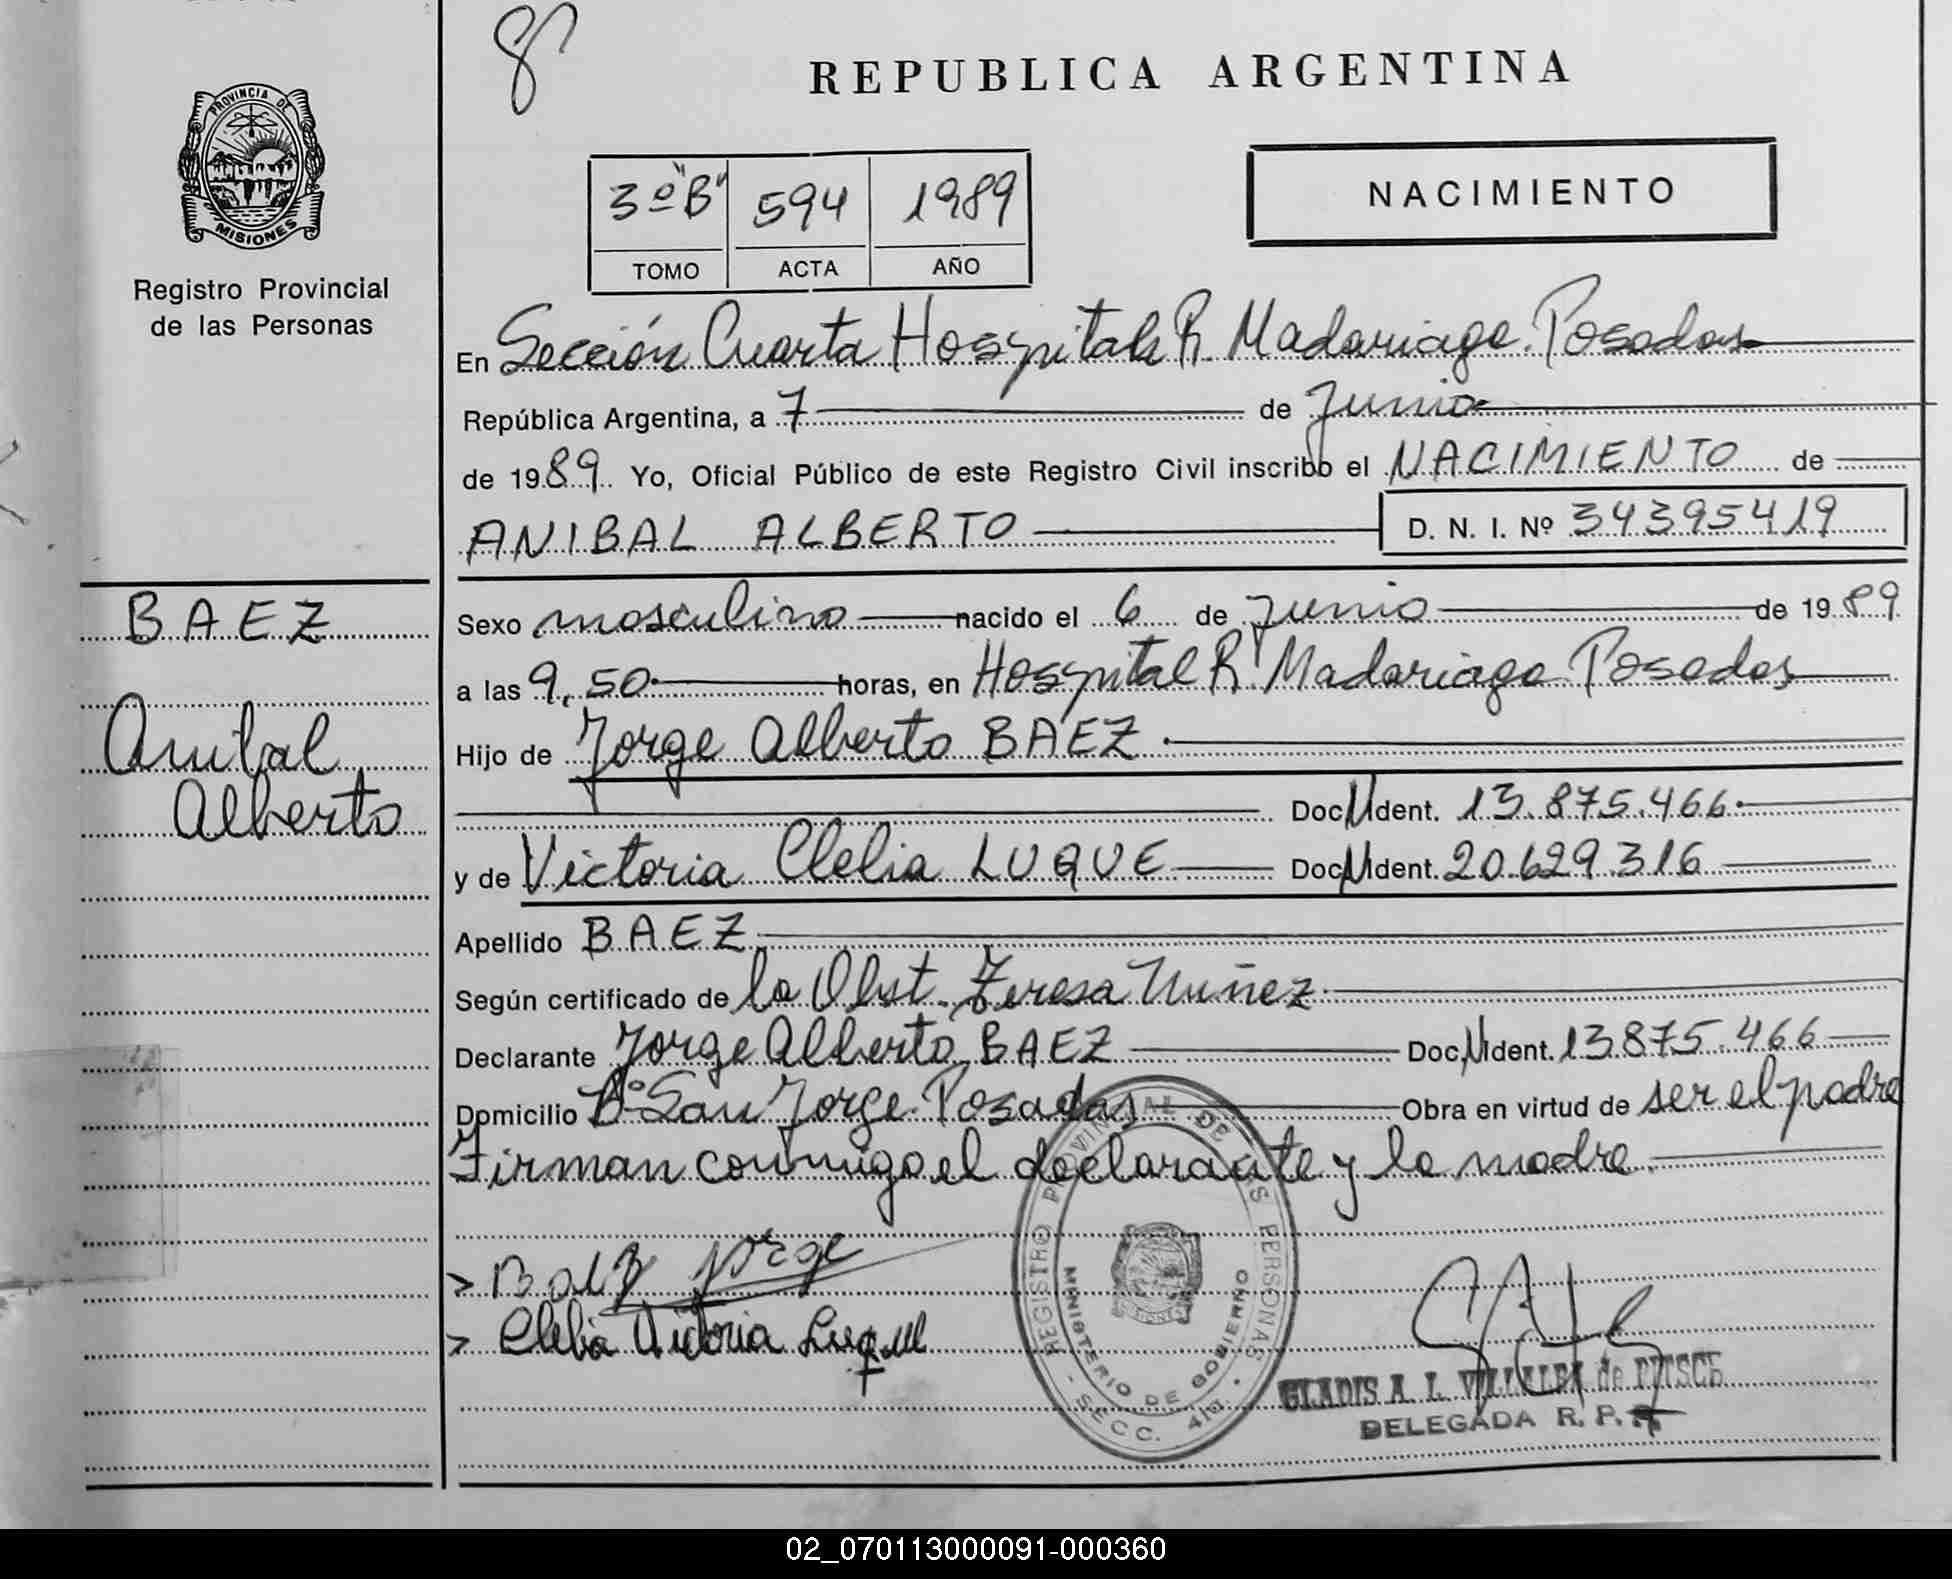 8
REPUBLICA ARGENTINA
PROVINCIA DE
MISIONES
Registro Provincial
de las Personas
3º "B" 594 1989
TOMO ACTA AÑO
NACIMIENTO
En Sección Cuarta Hospital R. Madariaga. Posadas
República Argentina, a 7 de Junio
de 1989. Yo, Oficial Público de este Registro Civil inscribo el NACIMIENTO de
ANIBAL ALBERTO D. N. I. Nº 34395419
BAEZ
Anibal
Alberto
Sexo masculino nacido el 6 de Junio de 1989
a las 9,50 horas, en Hospital R. Madariaga Posadas
Hijo de Jorge Alberto BAEZ
Doc. Ident. 13.875.466
y de Victoria Clelia LUQUE Doc. Ident. 20.629.316
Apellido BAEZ
Según certificado de la Obst. Teresa Nuñez
Declarante Jorge Alberto BAEZ Doc. Ident. 13.875.466
Domicilio Bº San Jorge. Posadas Obra en virtud de ser el padre
Firman conmigo el declarante y la madre.
> Baez Jorge
> Clelia Victoria Luque
REGISTRO PROVINCIAL DE LAS PERSONAS
MINISTERIO DE GOBIERNO
- SECC. 4ta. -
GLADIS A. L. VILLALBA de
DELEGADA R. P. P.
02_070113000091-000360